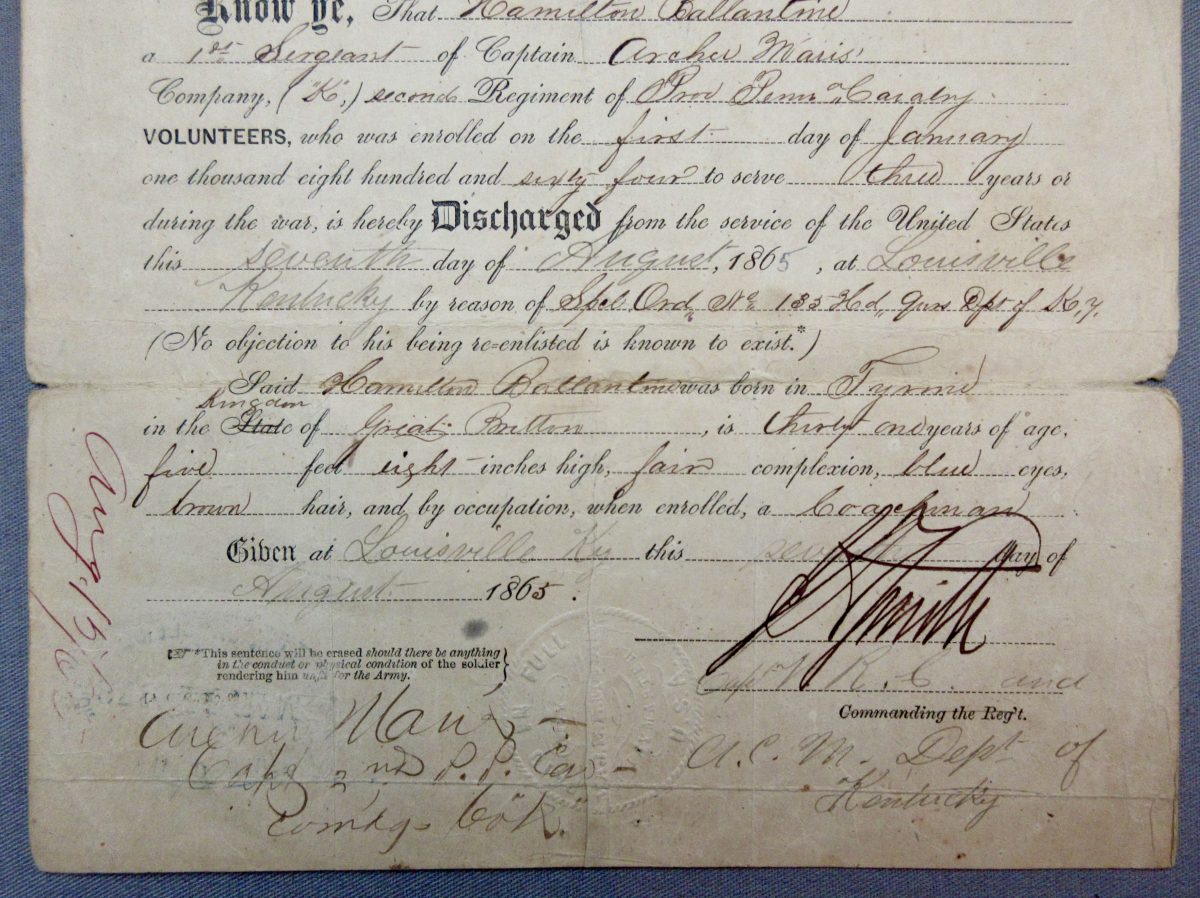 Know ye, That Hamilton Ballantine
a 1st Sergeant of Captain Archer Maris'
Company, ("K",) second Regiment of Prov Penn Cavalry
VOLUNTEERS, who was enrolled on the first day of January
one thousand eight hundred and sixty four to serve three years or
during the war, is hereby Discharged from the service of the United States
this seventh day of August, 1865, at Louisville
Kentucky by reason of Spcl Ord No 135 Hd, Qurs Dpt of K,y,
(No objection to his being re-enlisted is known to exist.*)
Said Hamilton Ballantine was born in Tyrone
Kingdom
in the State of Great Britton, is thirty one years of age,
five feet eight inches high, fair complexion, blue eyes,
brown hair, and by occupation, when enrolled, a Coachman
Given at Louisville Ky this seventh day of
August 1865.
*This sentence will be erased should there be anything
in the conduct or physical condition of the soldier
rendering him unfit for the Army.
Capt V. R. C. and
Commanding the Reg't.
A. C. M. Dept of
Kentucky
Archer Maris
Capt 2nd P. P. Cav
Comdg Co "K"
Aug, 15/65
IN FULL